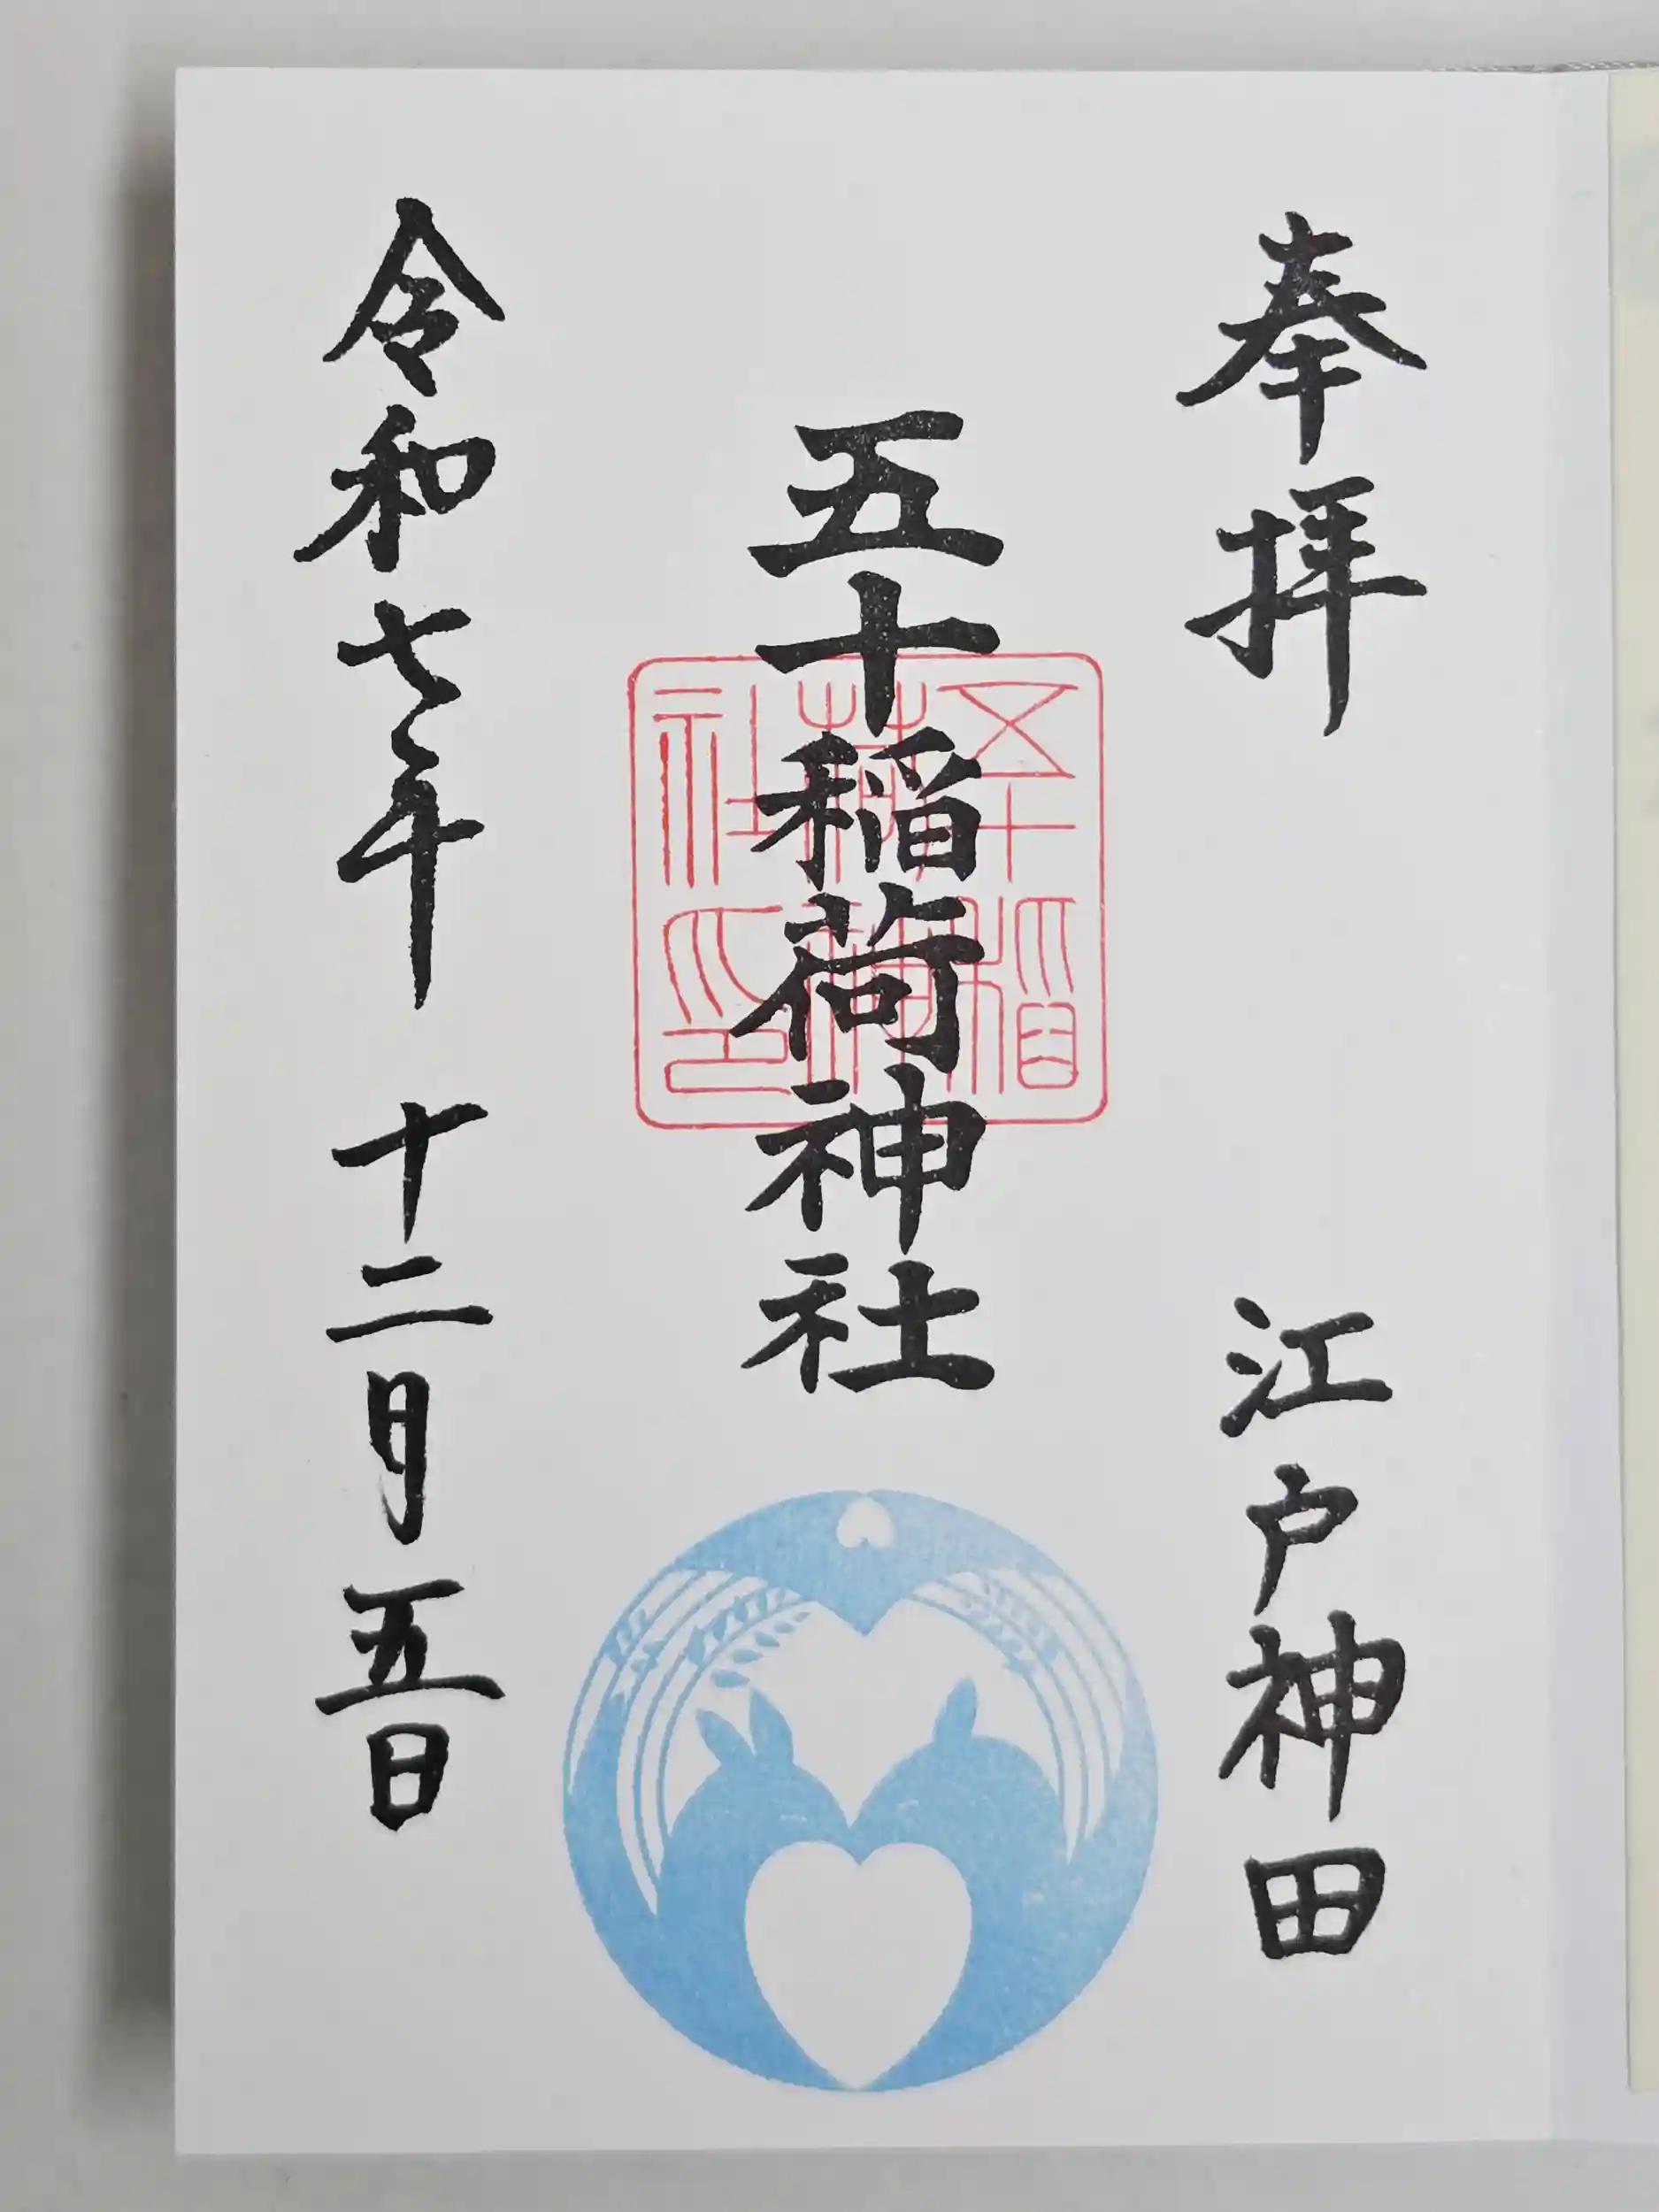 奉拝
江戸神田
五十稲荷神社
五十稲荷神社印
令和七年 十二月 五日